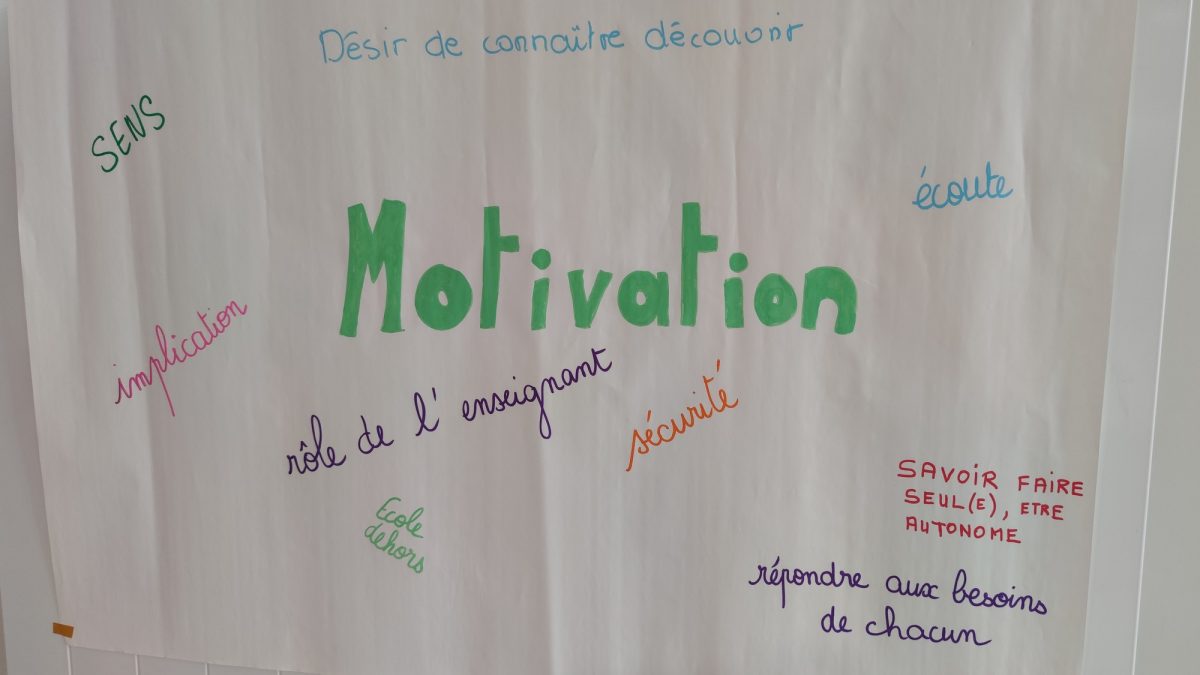 Désir de connaître découvrir
SENS
écoute
Motivation
implication
rôle de l'enseignant
sécurité
SAVOIR FAIRE
SEUL(E), ETRE
AUTONOME
Ecole
dehors
répondre aux besoins
de chacun